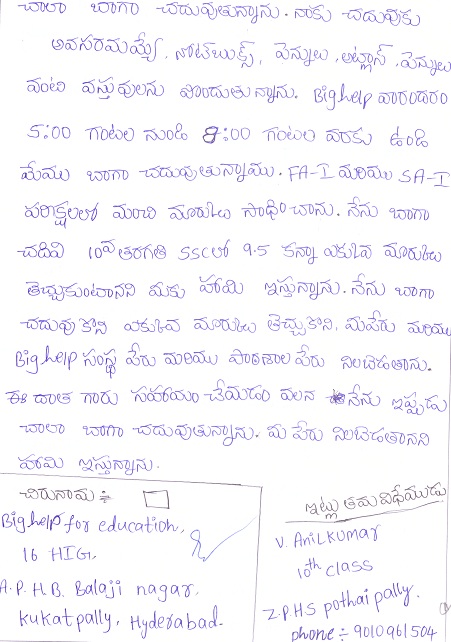 చాలా బాగా చదువుతున్నాను. నాకు చదువుకు
అవసరమయ్యే, నోట్‌బుక్స్, పెన్నులు, అట్లాస్, పెన్నులు
వంటి వస్తువులను పొందుతున్నాను. Bighelp వారందరం
5:00 గంటల నుండి 8:00 గంటల వరకు ఉండి
మేము బాగా చదువుతున్నాము. FA-I మరియు SA-I
పరిక్షలలో మంచి మార్కులు సాధించాను. నేను బాగా
చదివి 10వ తరగతి SSCలో 9.5 కన్నా ఎకువ మార్కులు
తెచ్చుకుంటానని మీకు హామి ఇస్తున్నాను. నేను బాగా
చదువుకొని ఎకువ మార్కులు తెచ్చుకొని, మీపేరు మరియు
Bighelp సంస్థ పేరు మరియు పాఠశాల పేరు నిలబెడతాను.
ఈ దాత గారు సహాయం చేయడం వలన నేను ఇప్పుడు
చాలా బాగా చదువుతున్నాను. మీ పేరు నిలబెడతానని
హామి ఇస్తున్నాను.
చిరునామ :-
Bighelp for education,
16 HIG,
A.P.H.B. Balaji nagar,
kukatpally, Hyderabad.
ఇట్లు తమ విధేయుడు
V. AnilKumar
10th class
Z.P.HS pothaipally.
phone :- 9010961504